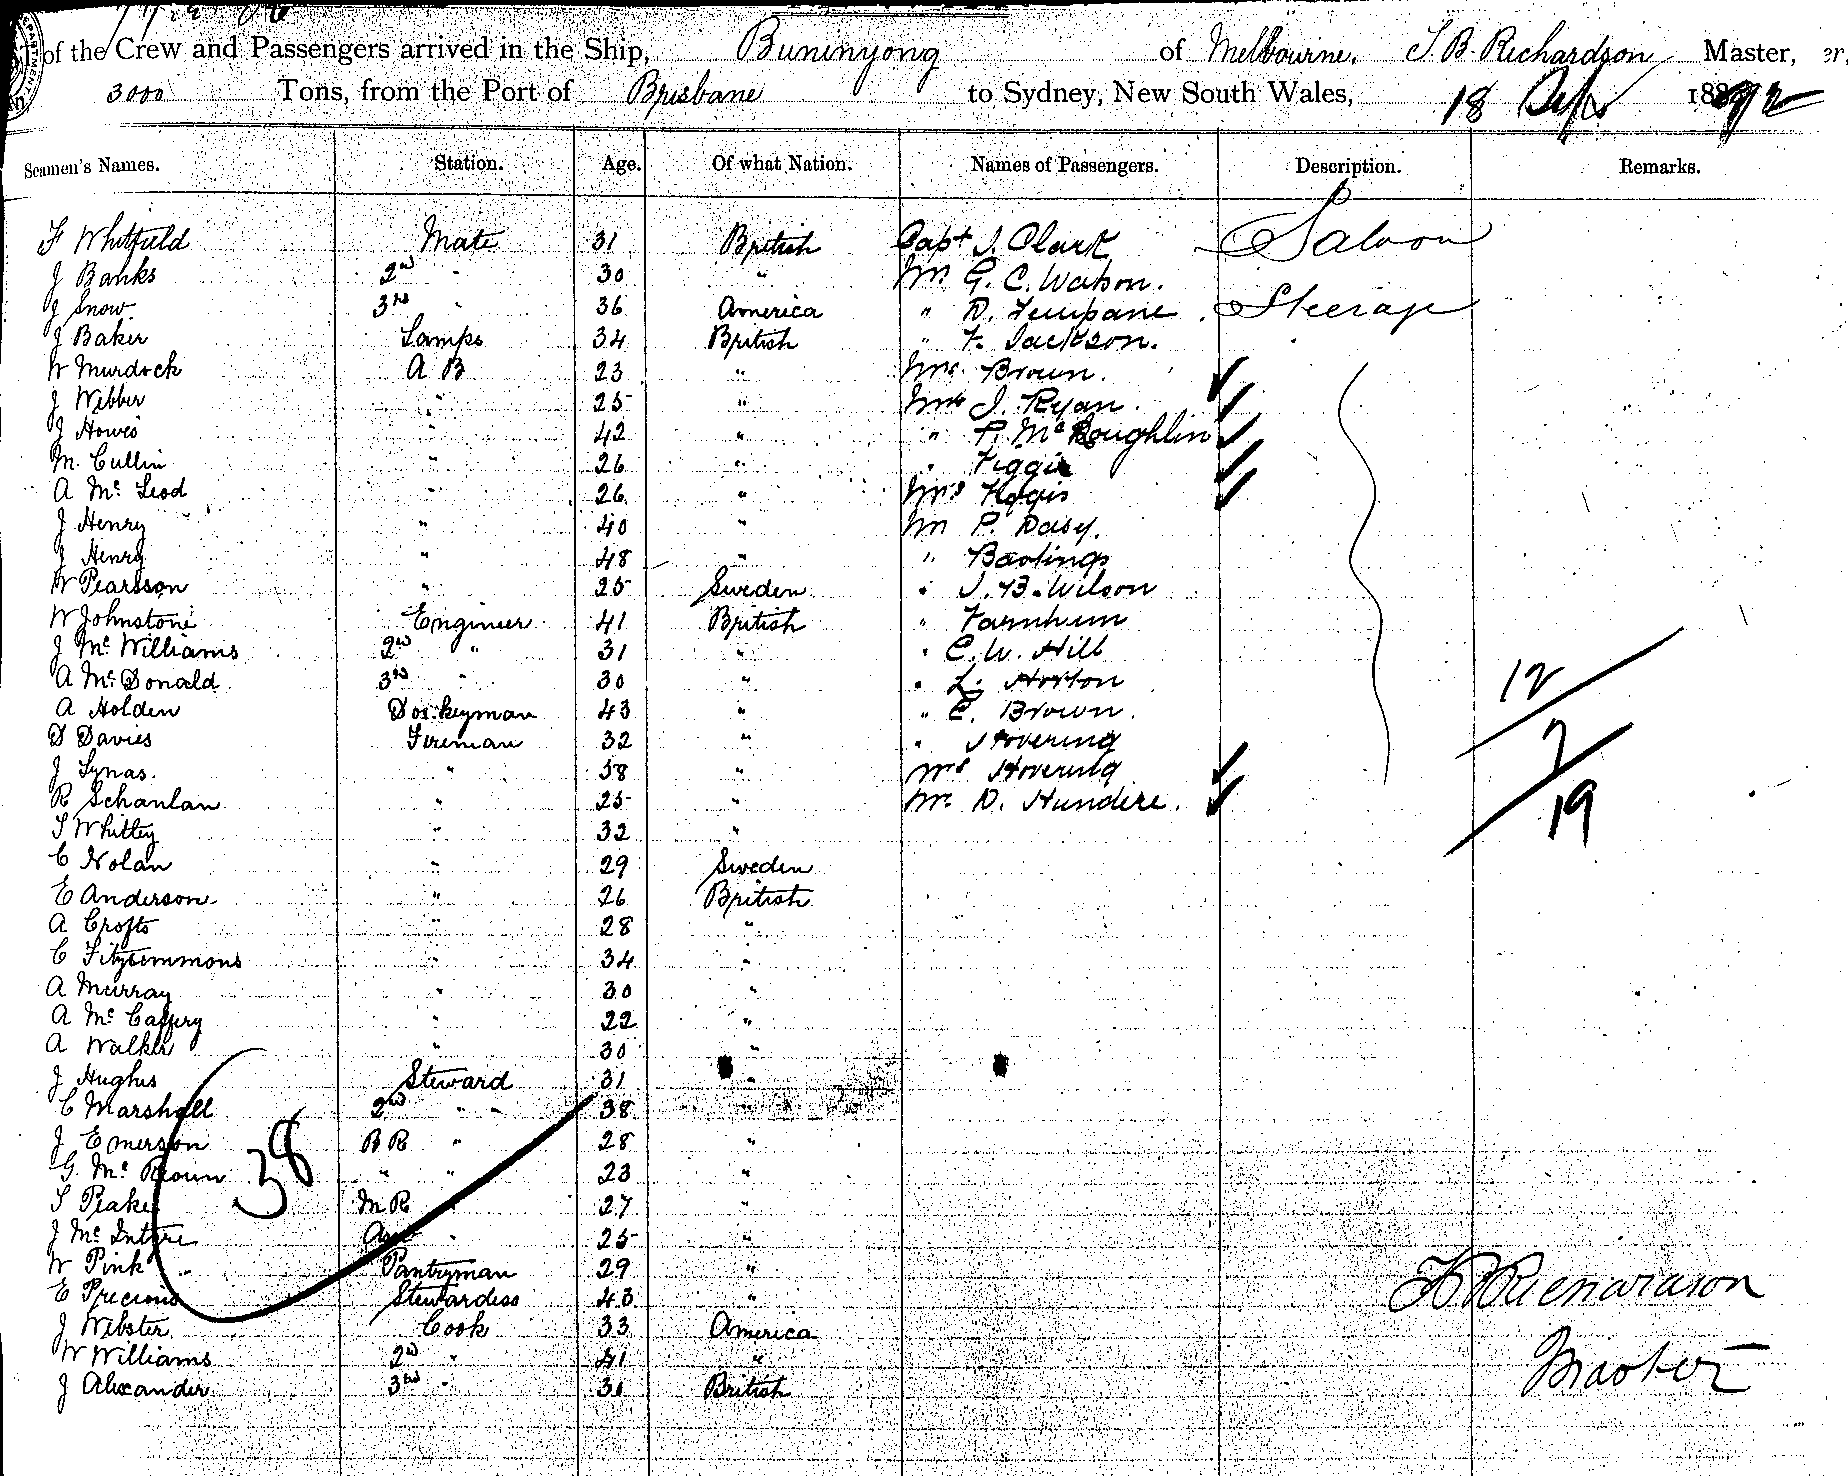 of the Crew and Passengers arrived in the Ship, Buninyong of Melbourne, T. B. Richardson Master,
3000 Tons, from the Port of Brisbane to Sydney, New South Wales, 18 1892
Seamen's Names. Station. Age. Of what Nation. Names of Passengers. Description. Remarks.
F Whitfield Mate 31 British Capt J. Clark Saloon
J Banks 2nd " 30 " Mr G. C. Watson.
J Snow 3rd " 36 America " D. Tempane Steerage
J Baker Lamps 34 British " F. Jackson.
W Murdock A B 23 " Mrs Brown.
J Webber " 25 " J. Ryan.
J Howes " 42 " " P. McLoughlin
M. Cullin " 26 " " Figgis
A McLeod " 26 " Mrs Figgis
J Henry " 40 " Mr P. Dasy.
J Henry " 48 " " Bastings
W Pearsson " 25 Sweden " J. B. Wilson
W Johnstone Engineer 41 British " Farnham
J McWilliams 2nd " 31 " " C. W. Hill
A McDonald 3rd " 30 " " L. Horton 12
A Holden Donkeyman 43 " " C. Brown. 7
D Davies Fireman 32 " " Hovering
J Lynas. " 38 " Mrs Hovering
R Schanlan " 25 " Mr D. Hundere. 19
S Whitley " 32 "
C Nolan " 29 Sweden
E Anderson " 26 British
A Crofts " 28 "
C Fitzsimmons " 34 "
A Murray " 30 "
A McCaffery " 22 "
A Walker " 30 "
J Hughes Steward 31 "
C Marshall 2nd " " 38 "
J Emerson B R " 28 "
38
G. Mc " " 23 "
S Peake M R " 27 "
J McIntyre " 25 "
W Pink Pantryman 29 "
E Precious Stewardess 43 " Richardson
J Webster Cook 33 America
W Williams 2nd " 41 " Master
J Alexander 3rd " 30 British